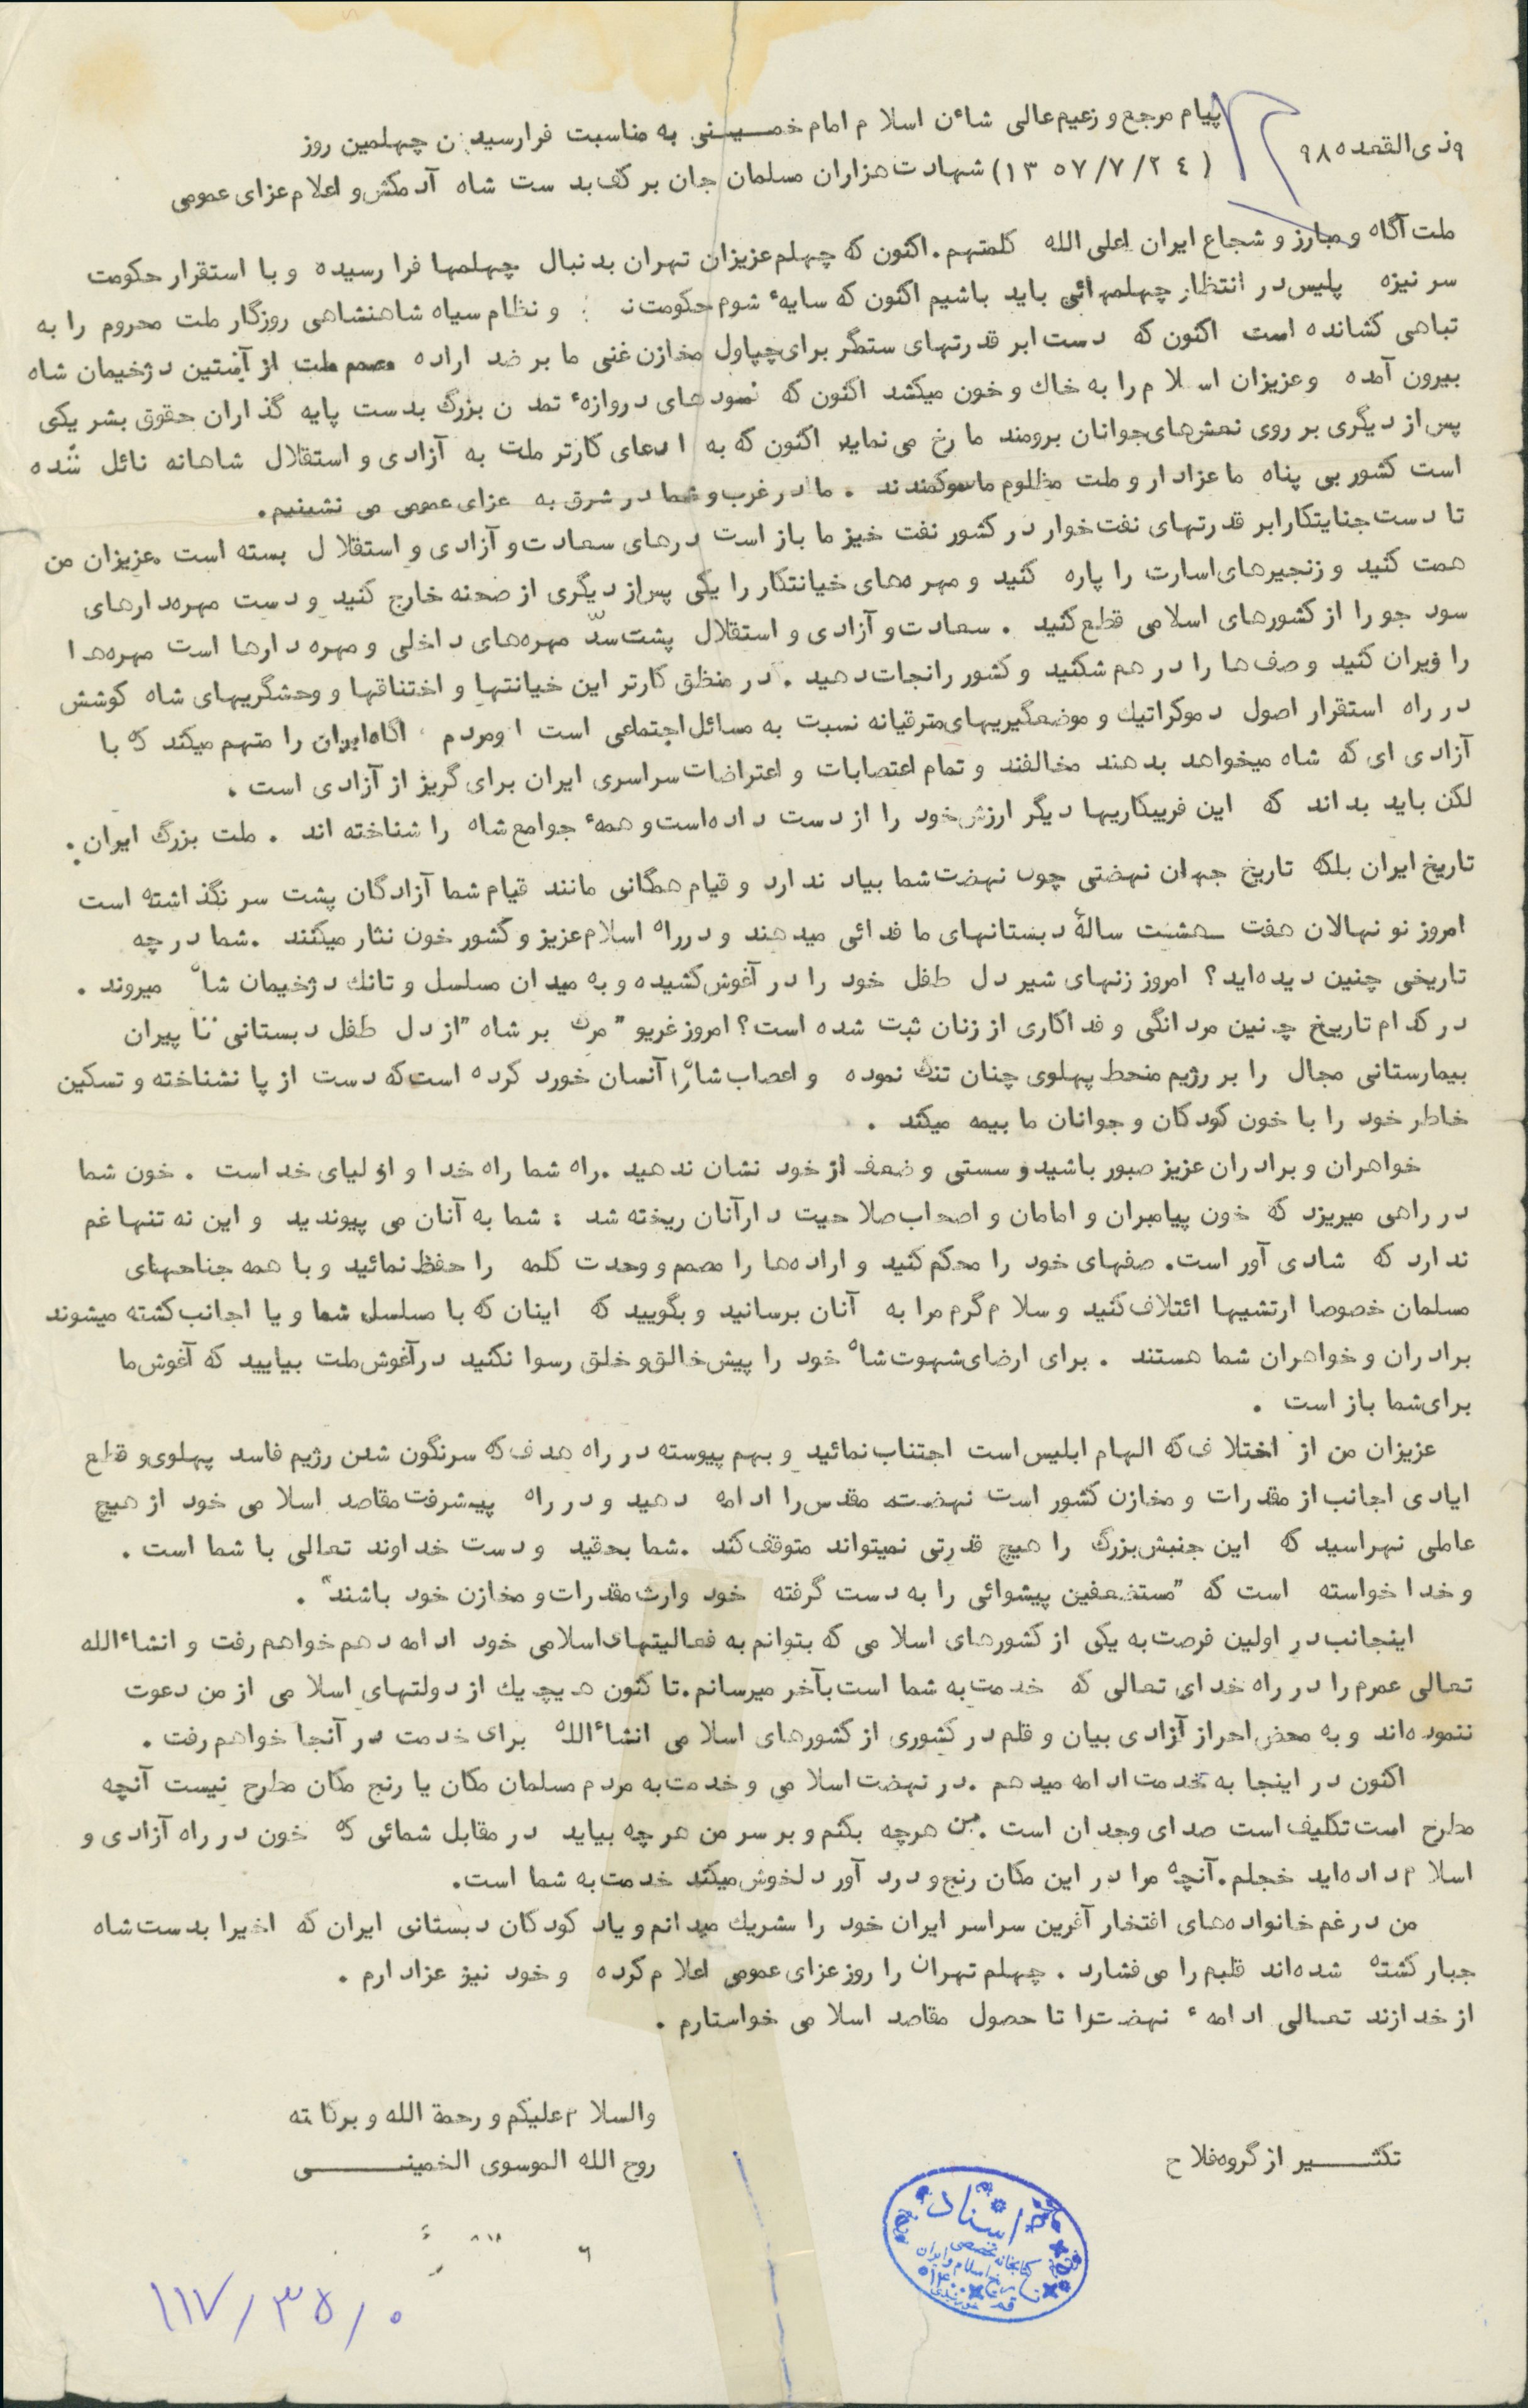 پیام مرجع و زعیم عالی شاٴن اسلام امام خمینی به مناسبت فرارسیدن چهلمین روز
وذی القعده ٩٨
(١٣٥٧/٧/٢٤) شهادت هزاران مسلمان جان بر کف بدست شاه آدمکش و اعلام عزای عمومی
ملت آگاه و مبارز و شجاع ایران اعلی الله کلمتهم . اکنون که چهلم عزیزان تهران بدنبال چهلمها فرا رسیده و با استقرار حکومت
سر نیزه پلیس در انتظار چهلمهائی باید باشیم اکنون که سایهٴ شوم حکومت و نظام سیاه شاهنشاهی روزگار ملت محروم را به
تباهی کشانده است اکنون که دست ابر قدرتهای ستمگر برای چپاول مخازن غنی ما بر ضد اراده مصمم ملت از آستین دژخیمان شاه
بیرون آمده و عزیزان اسلام را به خاک و خون میکشد اکنون که نمودهای دروازهٴ تمدن بزرگ بدست پایه گذاران حقوق بشر یکی
پس از دیگری بر روی نعشهای جوانان برومند ما رخ می نماید اکنون که به ادعای کارتر ملت به آزادی و استقلال شاهانه نائل شده
است کشور بی پناه ما عزادار و ملت مظلوم ما سوگمندند . ما در غرب و شما در شرق به عزای عمومی می نشینیم .
تا دست جنایتکار ابر قدرتهای نفت خوار در کشور نفت خیز ما باز است درهای سعادت و آزادی و استقلال بسته است . عزیزان من
همت کنید و زنجیرهای اسارت را پاره کنید و مهره های خیانتکار را یکی پس از دیگری از صحنه خارج کنید و دست مهره دارهای
سود جو را از کشورهای اسلامی قطع کنید . سعادت و آزادی و استقلال پشت سدّ مهره های داخلی و مهره دارها است مهره ها
را ویران کنید و صف ها را در هم شکنید و کشور را نجات دهید . در منطق کارتر این خیانتها و اختناقها و وحشگریهای شاه کوشش
در راه استقرار اصول دموکراتیک و موضعگیریهای مترقیانه نسبت به مسائل اجتماعی است او مردم آگاه ایران را متهم میکند که با
آزادی ای که شاه میخواهد بدهند مخالفند و تمام اعتصابات و اعتراضات سراسری ایران برای گریز از آزادی است .
لکن باید بداند که این فریبکاریها دیگر ارزش خود را از دست داده است و همهٴ جوامع شاه را شناخته اند . ملت بزرگ ایران :
تاریخ ایران بلکه تاریخ جهان نهضتی چون نهضت شما بیاد ندارد و قیام همگانی مانند قیام شما آزادگان پشت سر نگذاشته است
امروز نو نهالان هفت ـ هشت سالهٴ دبستانهای ما فدائی میدهند و در راه اسلام عزیز و کشور خون نثار میکنند . شما در چه
تاریخی چنین دیده اید ؟ امروز زنهای شیر دل طفل خود را در آغوش کشیده و به میدان مسلسل و تانک دژخیمان شاه میروند .
در کدام تاریخ چنین مردانگی و فداکاری از زنان ثبت شده است ؟ امروز غریو " مرگ بر شاه " از دل طفل دبستانی تا پیران
بیمارستانی مجال را بر رژیم منحط پهلوی چنان تنگ نموده و اعصاب شاه را آنسان خورد کرده است که دست از پا نشناخته و تسکین
خاطر خود را با خون کودکان و جوانان ما بیمه میکند .
خواهران و برادران عزیز صبور باشید و سستی و ضعف از خود نشان ندهید . راه شما راه خدا و اولیای خداست . خون شما
در راهی میریزد که خون پیامبران و امامان و اصحاب صلاحیت دار آنان ریخته شد : شما به آنان می پیوندید و این نه تنها غم
ندارد که شادی آور است . صفهای خود را محکم کنید و اراده ها را مصمم و وحدت کلمه را حفظ نمائید و با همه جناحهای
مسلمان خصوصا ارتشیها ائتلاف کنید و سلام گرم مرا به آنان برسانید و بگویید که اینان که با مسلسل شما و یا اجانب کشته میشوند
برادران و خواهران شما هستند . برای ارضای شهوت شاه خود را پیش خالق و خلق رسوا نکنید در آغوش ملت بیایید که آغوش ما
برای شما باز است .
عزیزان من از اختلاف که الهام ابلیس است اجتناب نمائید و بهم پیوسته در راه هدف که سرنگون شدن رژیم فاسد پهلوی و قطع
ایادی اجانب از مقدرات و مخازن کشور است نهضت مقدس را ادامه دهید و در راه پیشرفت مقاصد اسلامی خود از هیچ
عاملی نهراسید که این جنبش بزرگ را هیچ قدرتی نمیتواند متوقف کند . شما بحقید و دست خداوند تعالی با شما است .
و خدا خواسته است که " مستضعفین پیشوائی را به دست گرفته خود وارث مقدرات و مخازن خود باشند " .
اینجانب در اولین فرصت به یکی از کشورهای اسلامی که بتوانم به فعالیتهای اسلامی خود ادامه دهم خواهم رفت و انشاءالله
تعالی عمرم را در راه خدای تعالی که خدمت به شما است بآخر میرسانم . تا کنون هیچیک از دولتهای اسلامی از من دعوت
ننموده اند و به محض احراز آزادی بیان و قلم در کشوری از کشورهای اسلامی انشاءالله برای خدمت در آنجا خواهم رفت .
اکنون در اینجا به خدمت ادامه میدهم . در نهضت اسلامی و خدمت به مردم مسلمان مکان یا رنج مکان مطرح نیست آنچه
مطرح است تکلیف است صدای وجدان است . من هرچه بکنم و بر سر من هرچه بیاید در مقابل شمائی که خون در راه آزادی و
اسلام داده اید خجلم . آنچه مرا در این مکان رنج و درد آور دلخوش میکند خدمت به شما است .
من در غم خانواده های افتخار آفرین سراسر ایران خود را شریک میدانم و یاد کودکان دبستانی ایران که اخیرا بدست شاه
جبار کشته شده اند قلبم را می فشارد . چهلم تهران را روز عزای عمومی اعلام کرده و خود نیز عزادارم .
از خدازند تعالی ادامهٴ نهضت را تا حصول مقاصد اسلامی خواستارم .
والسلام علیکم و رحمة الله و برکاته
روح الله الموسوی الخمینی
تکثیر از گروه فلاح
اسناد
کتابخانه تخصصی
تاریخ اسلام و ایران
قم
١١٧/٣٥/٠